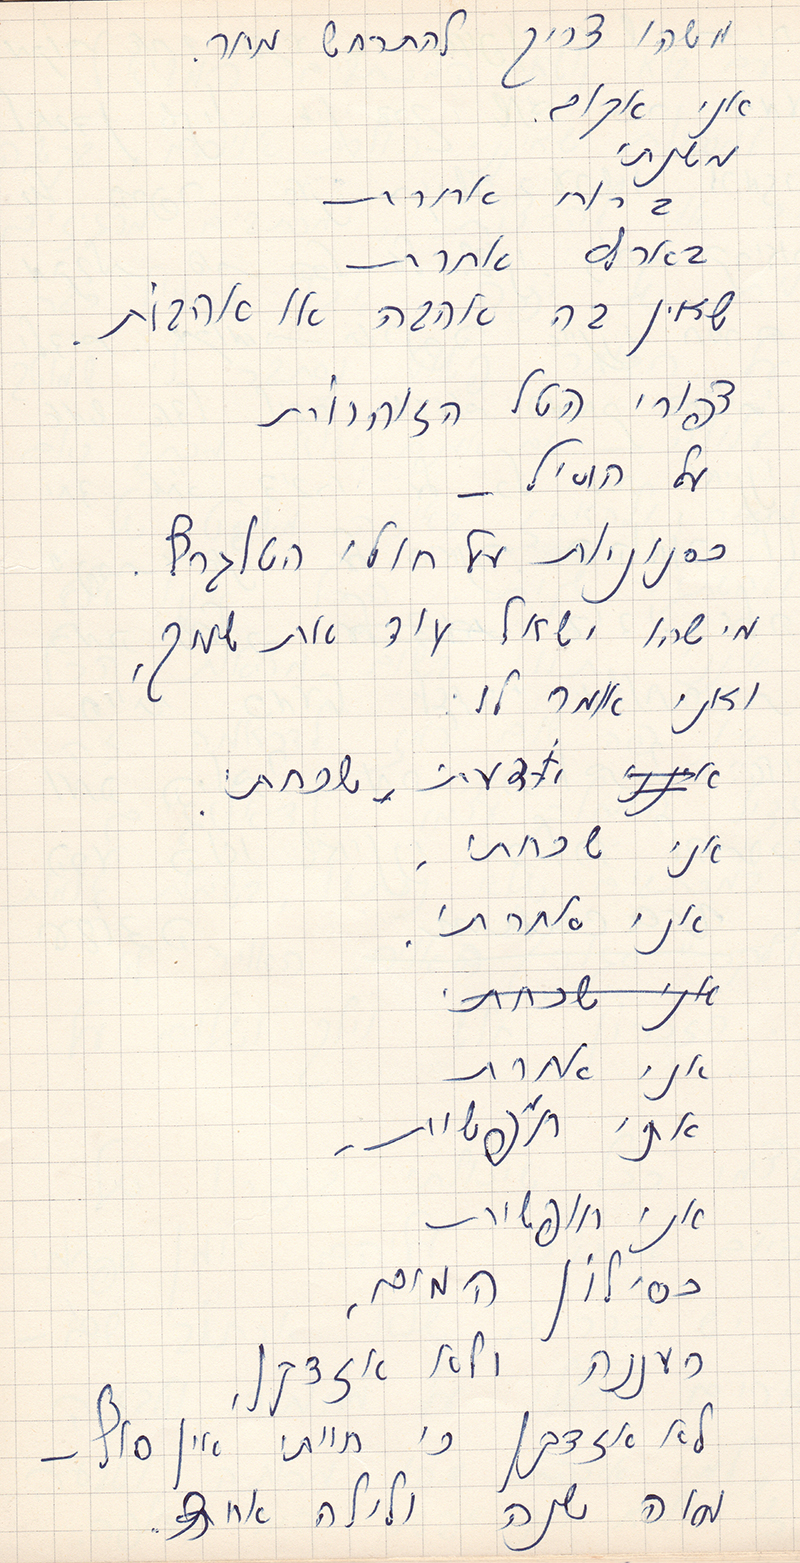 משהו צריך להתרחש מחר.
אני אקום.
משנתי
ברוח אחרת
בארץ אחרת
שאין בה אהבה או אהבות.
צפורי הטל הזוהרות
על השיל –
כסנוניות על חוטי הטלגרף.
מישהו ישאל עוד את שמך,
ואני אומר לו:
אינני ידעתי, שכחתי.
אני שכחתי,
אני אחרתי.
אני שכחתי
אני אחרת
אני חפשית,
אני חופשית
כסילון המים,
רעננה ולא אזדקן,
לא אזדקן כי חייתי אין סוף –
מאה שנה ולילה אחד.